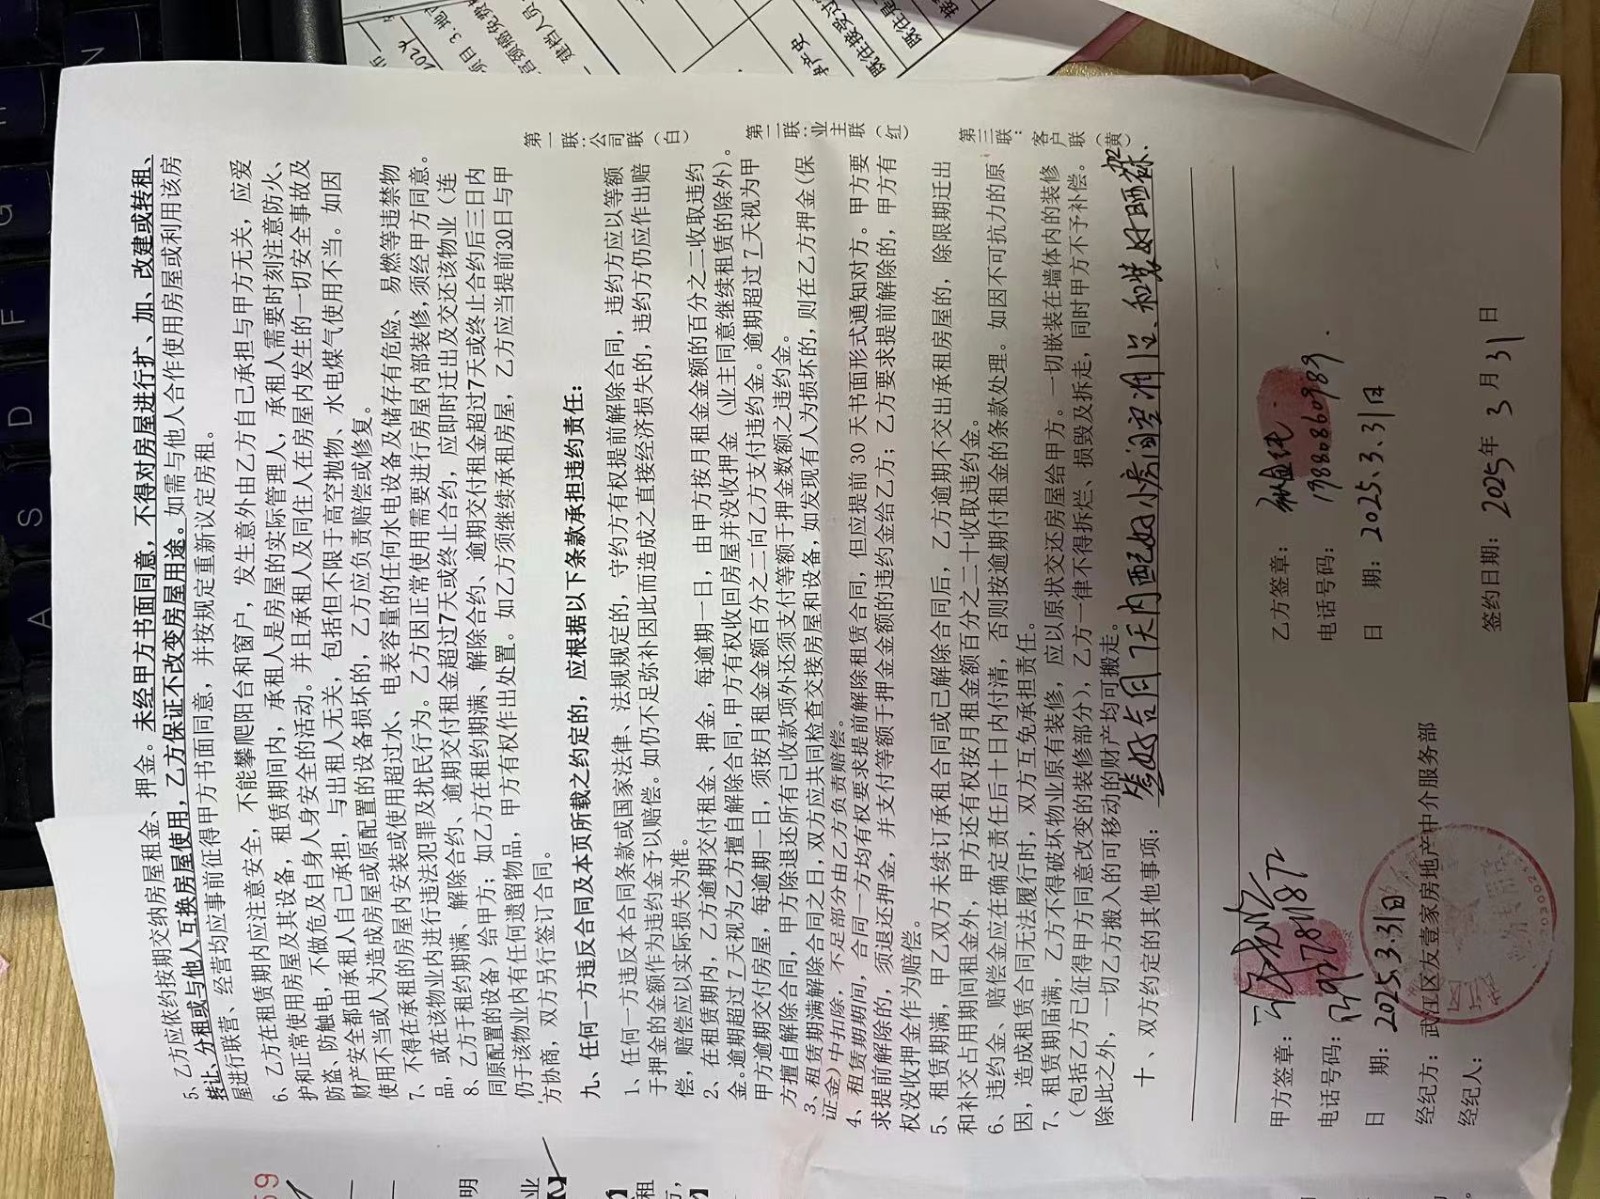 5、乙方应依约按期交纳房屋租金、押金。未经甲方书面同意，不得对房屋进行扩、加、改建或转租、
转让、分租或与他人互换房屋使用，乙方保证不改变房屋用途。如需与他人合作使用房屋或利用该房
屋进行联营、经营均应事前征得甲方书面同意，并按规定重新议定房租。
6、乙方在租赁期内应注意安全，不能攀爬阳台和窗户，发生意外由乙方自己承担与甲方无关，应爱
护和正常使用房屋及其设备，租赁期间内，承租人是房屋的实际管理人，承租人需要时刻注意防火、
防盗、防触电，不做危及自身人身安全的活动。并且承租人及同住人在房屋内发生的一切安全事故及
财产安全都由承租人自己承担，与出租人无关，包括但不限于高空抛物、水电煤气使用不当。如因
使用不当或人为造成房屋或原配置的设备损坏的，乙方应负责赔偿或修复。
7、不得在承租的房屋内安装或使用超过水、电表容量的任何水电设备及储存有危险、易燃等违禁物
品，或在该物业内进行违法犯罪及扰民行为。乙方因正常使用需要进行房屋内部装修，须经甲方同意。
8、乙方于租约期满、解除合约、逾期交付租金超过7天或终止合约，应即时迁出及交还该物业（连
同原配置的设备）给甲方；如乙方在租约期满、解除合约、逾期交付租金超过7天或终止合约后三日内
仍于该物业内有任何遗留物品，甲方有权作出处置。如乙方须继续承租房屋，乙方应当提前30日与甲
方协商，双方另行签订合同。
九、任何一方违反合同及本页所载之约定的，应根据以下条款承担违约责任：
1、任何一方违反本合同条款或国家法律、法规规定的，守约方有权提前解除合同，违约方应以等额
于押金的金额作为违约金予以赔偿。如仍不足弥补因此而造成之直接经济损失的，违约方仍应作出赔
偿，赔偿应以实际损失为准。
2、在租赁期内，乙方逾期交付租金、押金，每逾期一日，由甲方按月租金金额的百分之二收取违约
金。逾期超过 7 天视为乙方擅自解除合同，甲方有权收回房屋并没收押金（业主同意继续租赁的除外）。
甲方逾期交付房屋，每逾期一日，须按月租金金额百分之二向乙方支付违约金。逾期超过 7 天视为甲
方擅自解除合同，甲方除退还所有已收款项外还须支付等额于押金数额之违约金。
3、租赁期满解除合同之日，双方应共同检查交接房屋和设备，如发现有人为损坏的，则在乙方押金(保
证金)中扣除，不足部分由乙方负责赔偿。
4、租赁期期间，合同一方均有权要求提前解除租赁合同，但应提前 30 天书面形式通知对方。甲方要
求提前解除的，须退还押金，并支付等额于押金金额的违约金给乙方；乙方要求提前解除的，甲方有
权没收押金作为赔偿。
5、租赁期满，甲乙双方未续订承租合同或已解除合同后，乙方逾期不交出承租房屋的，除限期迁出
和补交占用期间租金外，甲方还有权按月租金额百分之二十收取违约金。
6、违约金、赔偿金应在确定责任后十日内付清，否则按逾期付租金的条款处理。如因不可抗力的原
因，造成租赁合同无法履行时，双方互免承担责任。
7、租赁期届满，乙方不得破坏物业原有装修，应以原状交还房屋给甲方。一切嵌装在墙体内的装修
（包括乙方已征得甲方同意改变的装修部分），乙方一律不得拆烂、损毁及拆走，同时甲方不予补偿。
除此之外，一切乙方搬入的可移动的财产均可搬走。
十、双方约定的其他事项：签好合同7天内配好小房间空调一台、和装好晒衣架.
甲方签章：
电话号码：
日 期：2025.3.31日
经纪方：武江区友壹家房地产中介服务部
经纪人：
乙方签章：
电话号码：19880860989.
日 期：2025.3.31日
签约日期：2025年 3 月 31 日
第一联：公司联（白）
第二联：业主联（红）
第三联：客户联（黄）